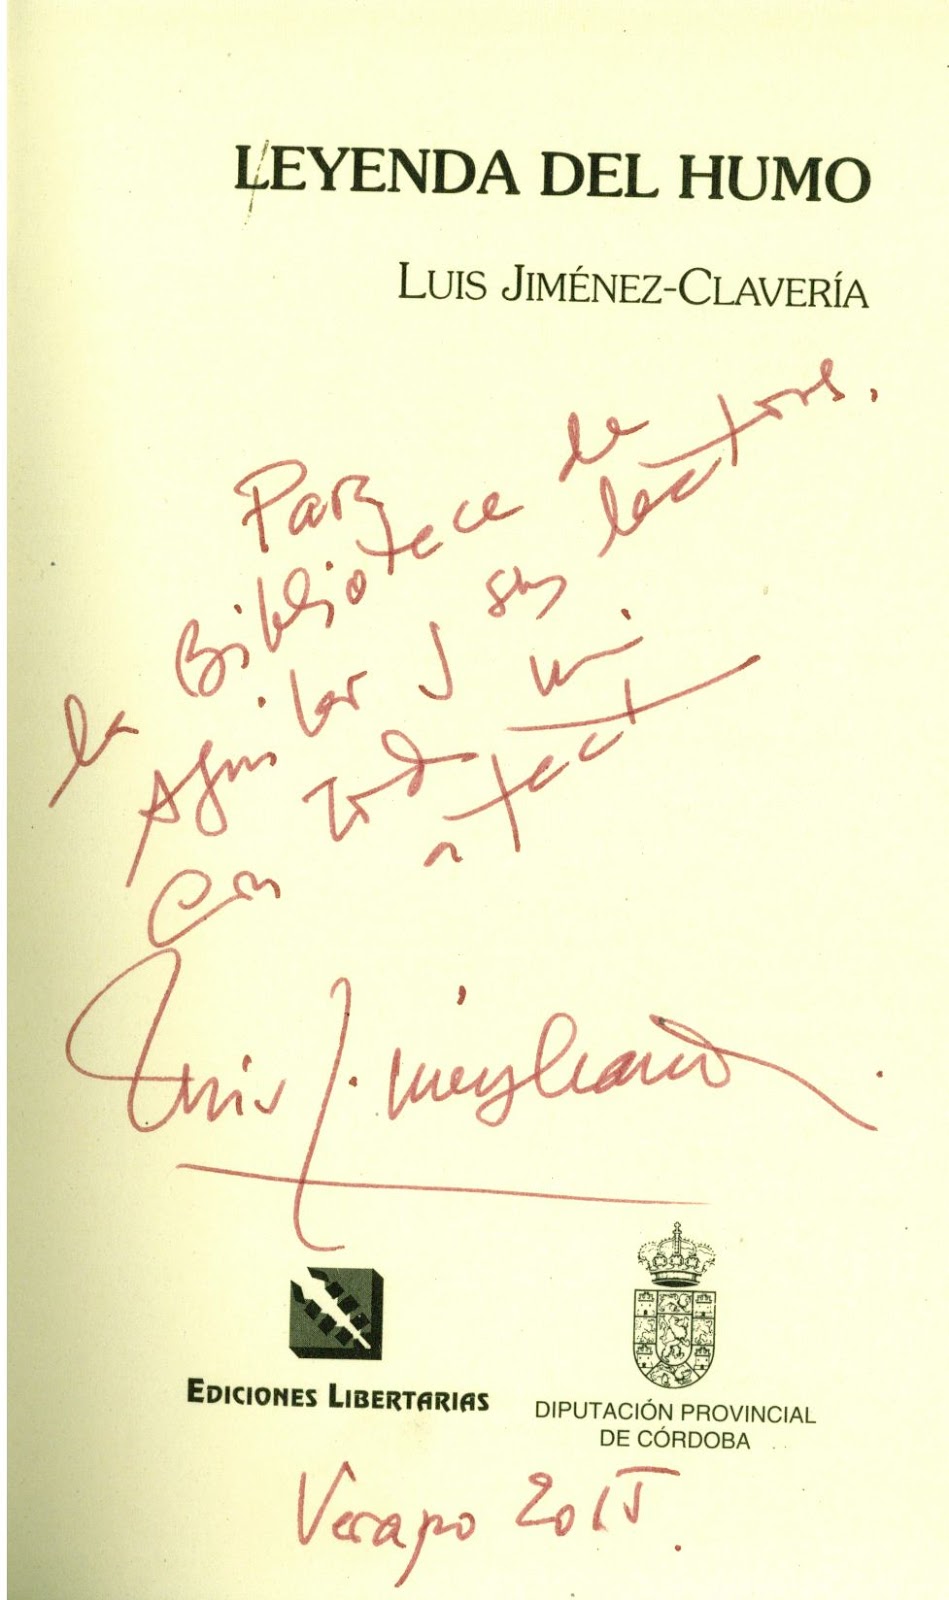 LEYENDA DEL HUMO
LUIS JIMÉNEZ-CLAVERÍA
Para
la Biblioteca de
Aguilar y sus lectores.
Con todo mi
afecto
Luis Jiménez
EDICIONES LIBERTARIAS
DIPUTACIÓN PROVINCIAL
DE CÓRDOBA
2015.